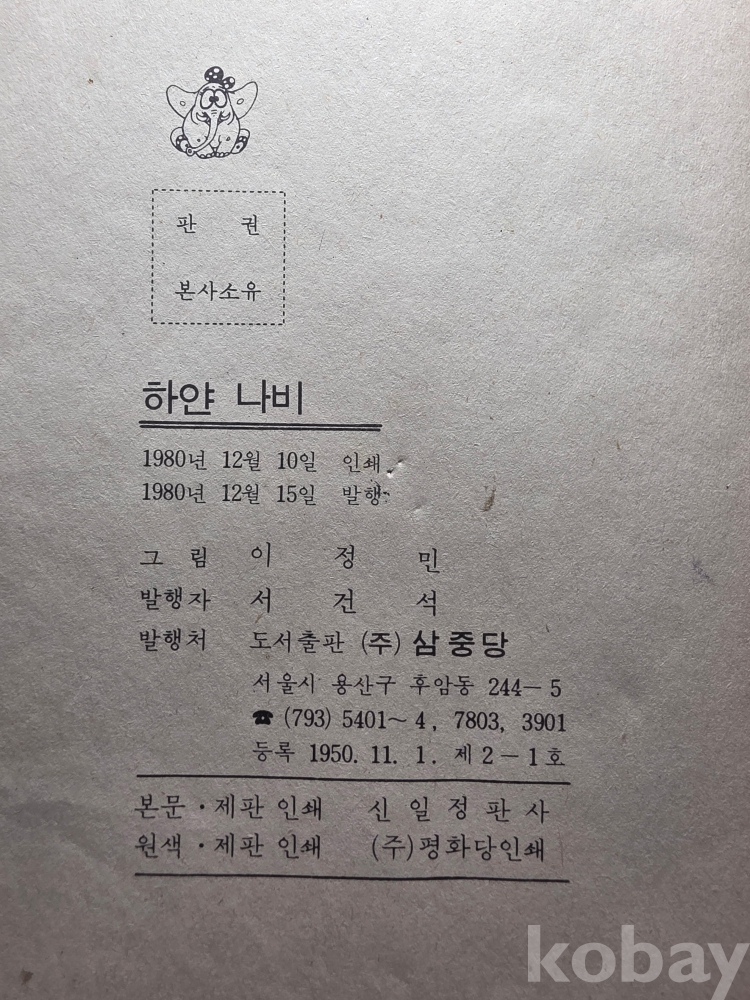 판 권
본사소유
하얀 나비
1980년 12월 10일 인쇄
1980년 12월 15일 발행
그 림 이 정 민
발행자 서 건 석
발행처 도서출판 (주) 삼중당
서울시 용산구 후암동 244-5
☎ (793) 5401~4, 7803, 3901
등록 1950. 11. 1. 제 2-1호
본문·제판 인쇄 신 일 정 판 사
원색·제판 인쇄 (주)평화당인쇄
kobay